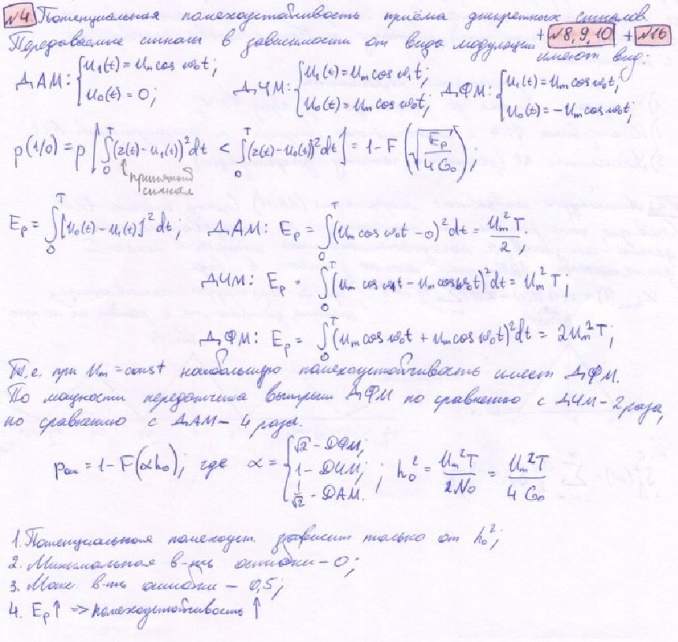 №4 Потенциальная помехоустойчивость приёма дискретных сигналов
Передаваемые сигналы в зависимости от вида модуляции + №8,9,10 + №16
имеют вид:
ДАМ: { u₁(t) = uₘ cos ω₀t; u₀(t) = 0; ДЧМ: { u₁(t) = uₘ cos ω₁t; u₀(t) = uₘ cos ω₀t; ДФМ: { u₁(t) = uₘ cos ω₀t; u₀(t) = −uₘ cos ω₀t;
p(1/0) = p[∫₀ᵀ(z(t) − u₁(t))²dt < ∫₀ᵀ(z(t) − u₀(t))²dt] = 1 − F(√(Eₚ/4G₀));
принятый
сигнал
Eₚ = ∫₀ᵀ[u₀(t) − u₁(t)]²dt; ДАМ: Eₚ = ∫₀ᵀ(uₘ cos ω₀t − 0)²dt = uₘ²T/2;
ДЧМ: Eₚ = ∫₀ᵀ(uₘ cos ω₁t − uₘ cos ω₀t)²dt = uₘ²T;
ДФМ: Eₚ = ∫₀ᵀ(uₘ cos ω₀t + uₘ cos ω₀t)²dt = 2uₘ²T;
Т.е. при uₘ = const наибольшую помехоустойчивость имеет ДФМ.
По мощности передатчика выигрыш ДФМ по сравнению с ДЧМ – 2 раза,
по сравнению с ДАМ – 4 раза.
pош = 1 − F(αh₀); где α = { √2 – ДФМ; 1 – ДЧМ; 1/√2 – ДАМ. ; h₀² = uₘ²T/2N₀ = uₘ²T/4G₀
1. Потенциальная помехоуст. зависит только от h₀²;
2. Минимальная в-ть ошибки – 0;
3. Макс. в-ть ошибки – 0,5;
4. Eₚ↑ => помехоустойчивость ↑